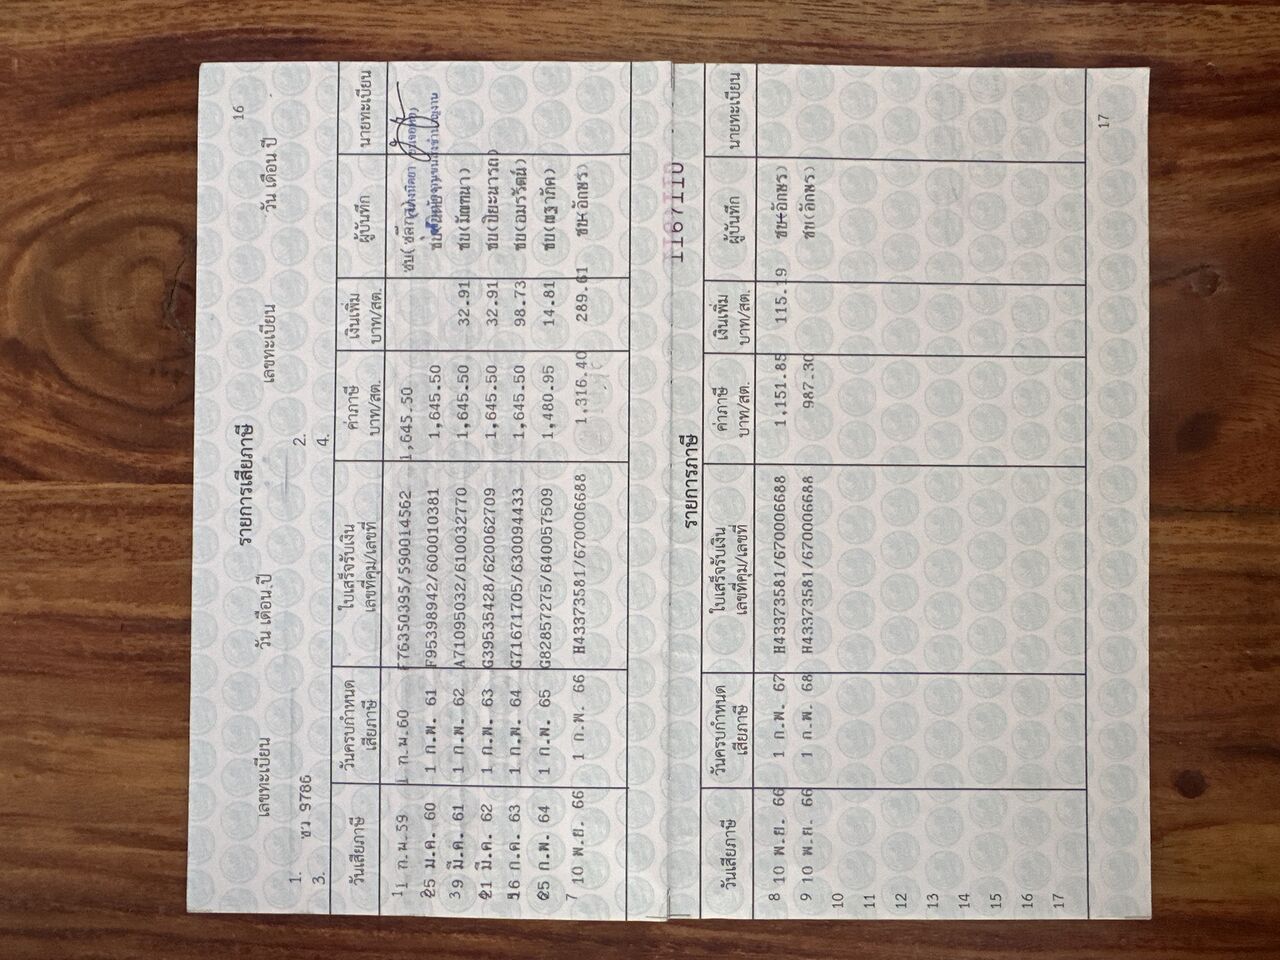 16
รายการเสียภาษี
เลขทะเบียน วัน เดือน ปี เลขทะเบียน วัน เดือน ปี
1. 2.
3. ชว 9786 4.
วันเสียภาษี วันครบกำหนดเสียภาษี ใบเสร็จรับเงิน เลขที่คุม/เลขที่ ค่าภาษี บาท/สต. เงินเพิ่ม บาท/สต. ผู้บันทึก นายทะเบียน
1 1 ก.พ.59 1 ก.พ.60 F76350395/590014562 1,645.50
25 ม.ค. 60 1 ก.พ. 61 F95398942/600010381 1,645.50
3 9 มี.ค. 61 1 ก.พ. 62 A71095032/610032770 1,645.50 32.91 ชบ(มัณฑนา)
21 มี.ค. 62 1 ก.พ. 63 G39535428/620062709 1,645.50 32.91 ชบ(ปิยะนารถ)
16 ก.ค. 63 1 ก.พ. 64 G71671705/630094433 1,645.50 98.73 ชบ(อมรรัตน์)
25 ก.พ. 64 1 ก.พ. 65 G82857275/640057509 1,480.95 14.81
7 10 พ.ย. 66 1 ก.พ. 66 H43373581/670006688 1,316.40 289.61 ชบ(อักษร)
รายการภาษี 1167110
วันเสียภาษี วันครบกำหนดเสียภาษี ใบเสร็จรับเงิน เลขที่คุม/เลขที่ ค่าภาษี บาท/สต. เงินเพิ่ม บาท/สต. ผู้บันทึก นายทะเบียน
8 10 พ.ย. 66 1 ก.พ. 67 H43373581/670006688 1,151.85 115.19 ชบ(อักษร)
9 10 พ.ย. 66 1 ก.พ. 68 H43373581/670006688 987.30 ชบ(อักษร)
10
11
12
13
14
15
16
17
17